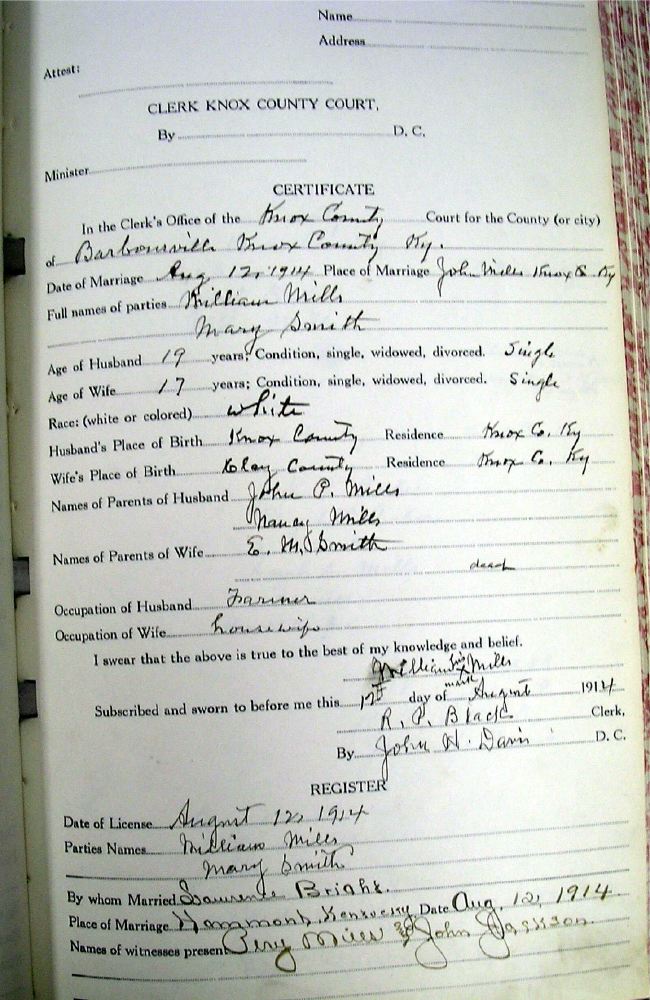 Name
Address
Attest:
CLERK KNOX COUNTY COURT,
By D. C.
Minister
CERTIFICATE
In the Clerk's Office of the Knox County Court for the County (or city)
of Barbourville Knox County Ky.
Date of Marriage Aug 12, 1914 Place of Marriage John Mills Knox Co Ky
Full names of parties William Mills
Mary Smith
Age of Husband 19 years; Condition, single, widowed, divorced. Single
Age of Wife 17 years; Condition, single, widowed, divorced. Single
Race: (white or colored) white
Husband's Place of Birth Knox County Residence Knox Co, Ky
Wife's Place of Birth Clay County Residence Knox Co, Ky
Names of Parents of Husband John P. Mills
Nancy Mills
Names of Parents of Wife E. M. Smith
dead
Occupation of Husband Farmer
Occupation of Wife housewife
I swear that the above is true to the best of my knowledge and belief.
William his x mark Mills
Subscribed and sworn to before me this 12th day of August 1914
R. P. Black Clerk,
By John H. Davis D. C.
REGISTER
Date of License August 12, 1914
Parties Names William Mills
Mary Smith
By whom Married Lawrence Brighs.
Place of Marriage Kentucky Date Aug. 12, 1914
Names of witnesses present Mills & John Jackson